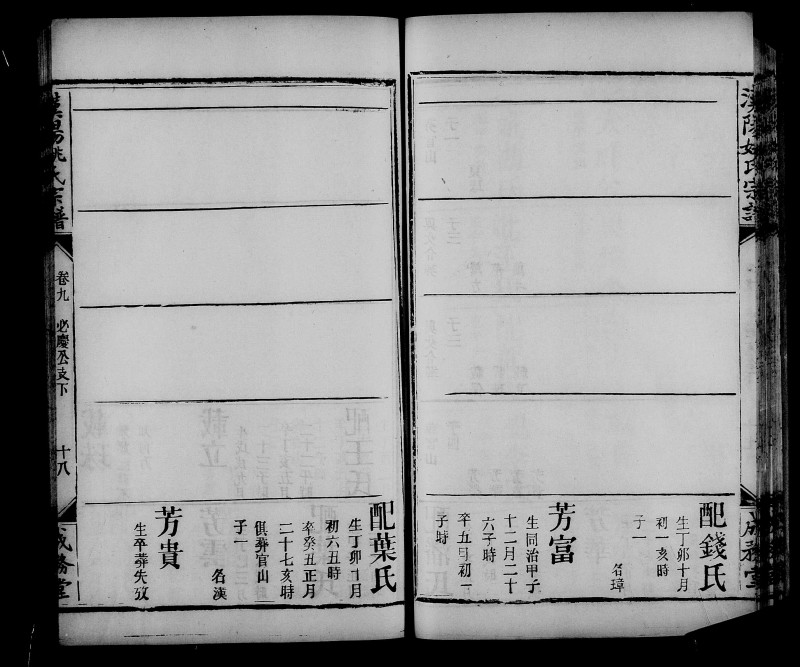 漢陽姚氏宗譜
配錢氏
生丁卯十月
初一亥時
子一
名璋
芳富
生同治甲子
十二月二十
六子時
卒五月初一
子時
配葉氏
生丁卯十月
初六丑時
卒癸丑正月
二十七亥時
俱葬官山
子一
名漢
芳貴
生卒葬失攷
漢陽姚氏宗譜
卷九
必慶公支下
十八